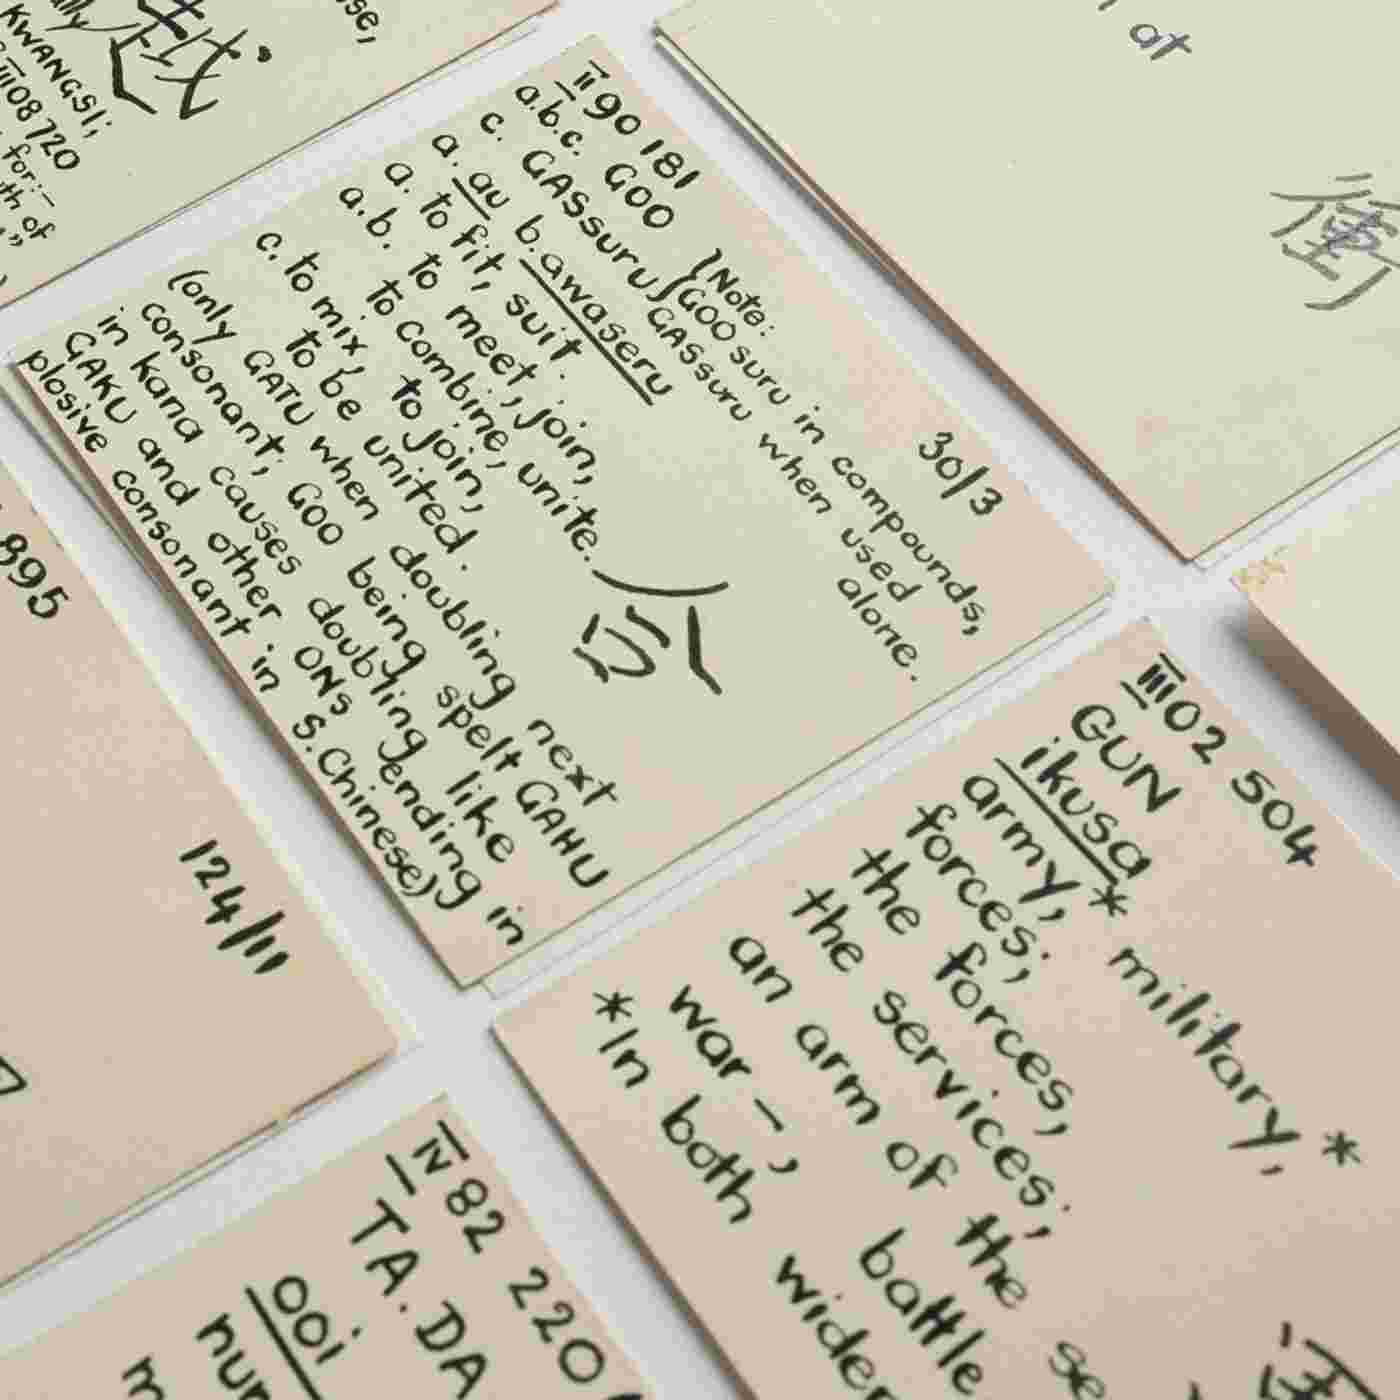 越
KWANGSI;
III 08 720
for:—
at
衝
II 90 181
a.b.c. GOO } Note:
c. GASsuru } GOOsuru in compounds,
GASsuru when used
alone.
a. au b. awaseru
a. to fit, suit.
a.b. to meet, join,
to combine, unite.
c. to mix, to join,
to be united.
(only GATU when doubling next
consonant; GOO being spelt GAHU
in kana causes doubling like
GAKU and other ONs ending in
plosive consonant in S. Chinese)
30/3
合
895
124/11
III 02 504
GUN
ikusa
army,* military,*
forces;
the forces,
the services;
an arm of the
war –, battle
*In both wider
IV 82 220
TA. DA
ooi